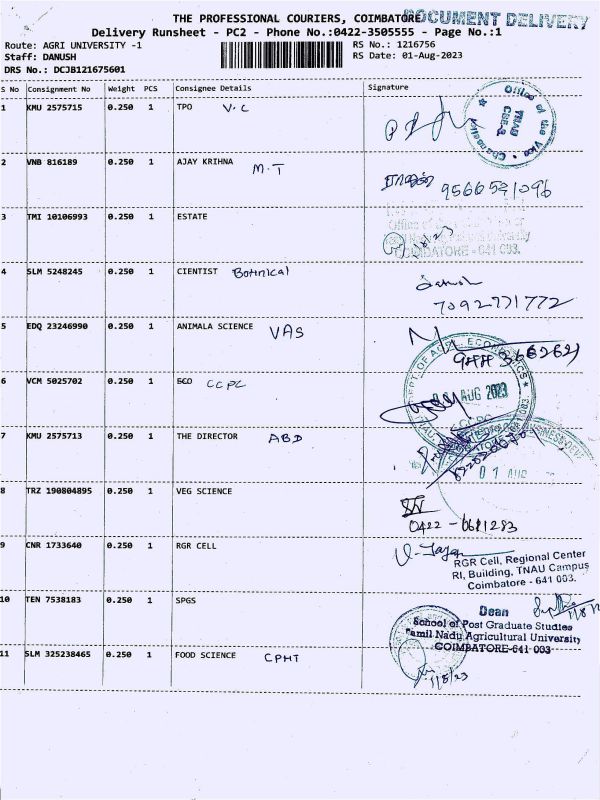 THE PROFESSIONAL COURIERS, COIMBATORE
DOCUMENT DELIVERY
Delivery Runsheet - PC2 - Phone No.:0422-3505555 - Page No.:1
Route: AGRI UNIVERSITY -1
RS No.: 1216756
Staff: DANUSH
RS Date: 01-Aug-2023
DRS No.: DCJB121675601
S No Consignment No Weight PCS Consignee Details Signature
1 KMU 2575715 0.250 1 TPO V.C
Office of the Vice Chancellor
TNAU CBE-3
2 VNB 816189 0.250 1 AJAY KRIHNA M.T
9566591096
3 TMI 10106993 0.250 1 ESTATE
COIMBATORE - 641 003.
4 SLM 5248245 0.250 1 CIENTIST Botnical
7092771772
5 EDQ 23246990 0.250 1 ANIMALA SCIENCE VAS
6 VCM 5025702 0.250 1 ECO CCPC
DEPT. OF AGRL. ECONOMICS
AUG 2023
7 KMU 2575713 0.250 1 THE DIRECTOR ABD
01 AUG
8 TRZ 190804895 0.250 1 VEG SCIENCE
0422 - 6611283
9 CNR 1733640 0.250 1 RGR CELL
RGR Cell, Regional Center
RI, Building, TNAU Campus
Coimbatore - 641 003.
10 TEN 7538183 0.250 1 SPGS
Dean
School of Post Graduate Studies
Tamil Nadu Agricultural University
COIMBATORE-641 003
11 SLM 325238465 0.250 1 FOOD SCIENCE CPHT
1/8/23